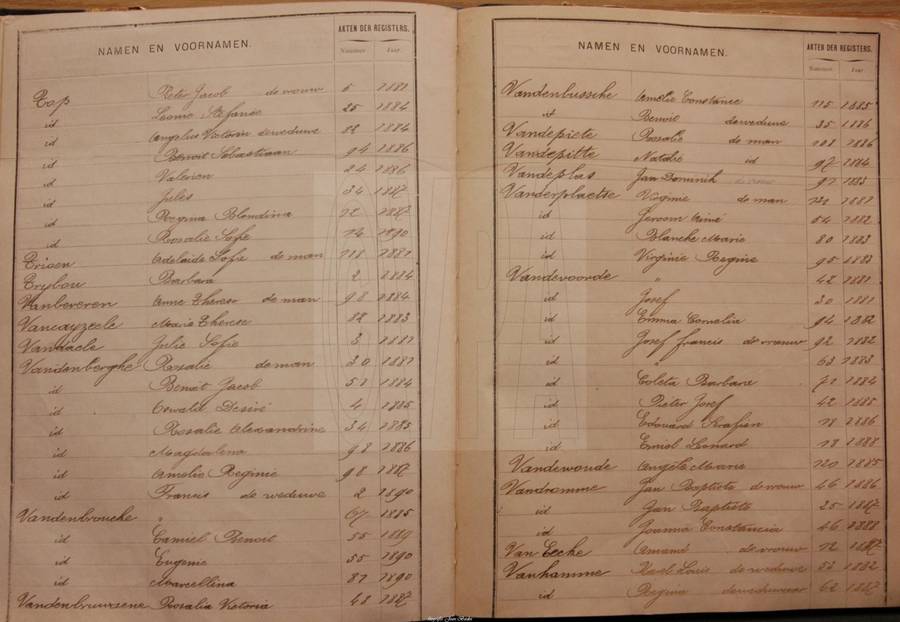 NAMEN EN VOORNAMEN. AKTEN DER REGISTERS.
Nummer Jaar
Tap Peter Jacob de vrouw 5 1881
id Leonie Stefanie 25 1884
id Angelus Victorin deweduwe 82 1884
id Benoit Sebastiaan 94 1886
id Valerien 24 1886
id Jules 34 1887
id Regina Blondina 12 1887
id Rosalie Sofie 14 1890
Trioen Adelaide Sofie de man 118 1881
Trybou Barbara 2 1884
Vanbeveren Anne Therese de man 98 1884
Vancayzeele Marie Therese 82 1883
Vandaele Julie Sofie 3 1881
Vandenberghe Rosalie de man 30 1881
id Benoit Jacob 51 1884
id Oswald Desiré 4 1885
id Rosalie Alexandrine 34 1885
id Magdalena 98 1886
id Amelie Reginie 98 1887
id Francis de weduwe 2 1890
Vandenbroucke " 67 1885
id Camiel Benoit 55 1889
id Eugenie 55 1890
id Marcellina 81 1890
Vandenbruwaene Rosalia Victoria 48 1887
NAMEN EN VOORNAMEN. AKTEN DER REGISTERS.
Nummer Jaar
Vandenbussche Amelie Constance 115 1885
id Benoit deweduwe 35 1886
Vandepiete Rosalie de man 108 1886
Vandepitte Natalie id 97 1884
Vandeplas Jan Dominik 91 1883
Vanderplaetse Virginie de man 1881
id Jeroom Aimé 54 1882
id Blanche Marie 80 1883
id Virginie Reginie 95 1883
Vandevoorde " 42 1881
id Josef 30 1881
id Emma Cornelia 94 1882
id Josef Francis de vrouw 92 1882
id 63 1883
id Coleta Barbara 71 1884
id Pieter Josef 42 1885
id Edouard Serafien 18 1886
id Emiel Leonard 18 1888
Vandewoude Angele Marie 120 1885
Vandromme Jan Baptiste de vrouw 46 1886
id Jan Baptiste 25 1887
id Joanna Constancia 46 1888
Van Eecke Amand de vrouw 12 1887
Vanhamme Karel Louis de weduwe 53 1882
id Regina deweduwaar 62 1887